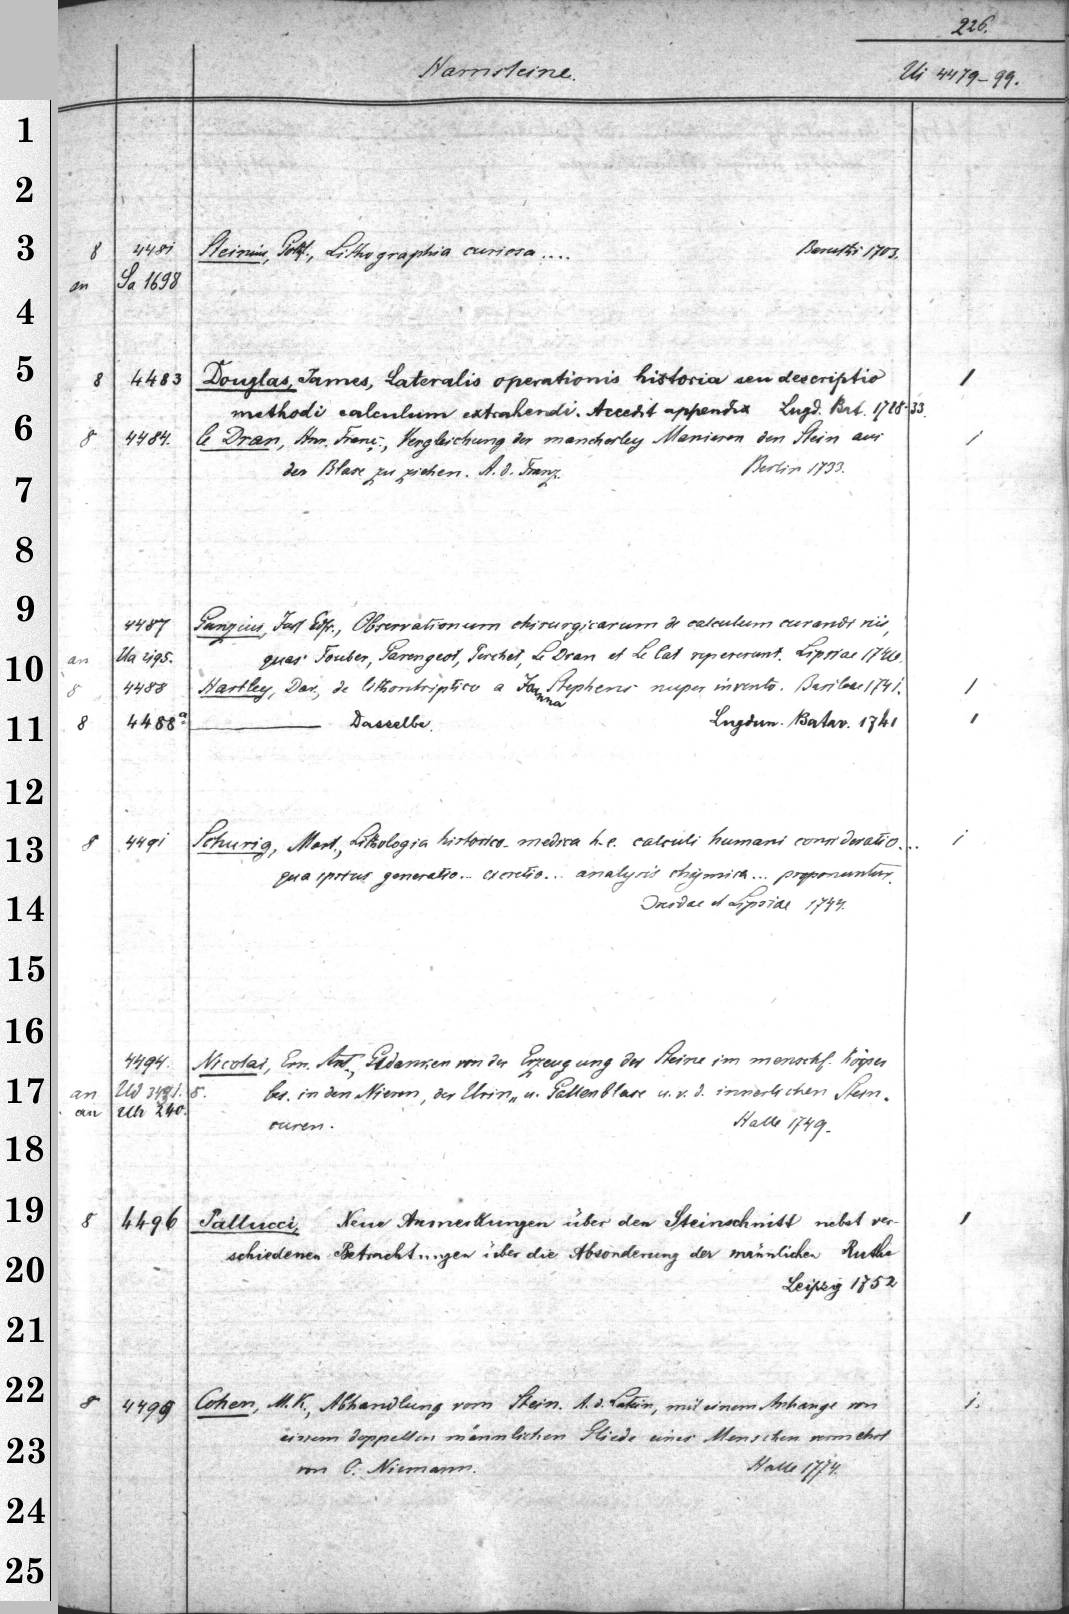 226.
Harnsteine. Ui 4479-99.
1
2
3 8 4481 Steinius, Gottf., Lithographia curiosa .... Baruthi 1703.
an Sa 1698
4
5 8 4483 Douglas, James, Lateralis operationis historia seu descriptio 1
methodi calculum extrahendi. Accedit appendix Lugd. Bat. 1728-33.
6 8 4484. le Dran, Hnr. Franç., Vergleichung der mancherley Manieren den Stein aus 1
der Blase zu ziehen. A. d. Franz. Berlin 1733.
7
8
9 4487 Gunzius, Just Gdfr., Observationum chirurgicarum de calculum curandi viis,
10 an Ua 2195. quas Fouber, Garengeot, Perchet, Le Dran et Le Cat repererunt. Lipsiae 1740.
8 4488 Hartley, Dav., de lithontriptico a Joanna Stephens nuper invento. Basileae 1741. 1
11 8 4488a ——— Dasselbe. Lugdun. Batav. 1741 1
12
13 8 4491 Schurig, Mart., Lithologia historico-medica h.e. calculi humani consideratio... 1
qua ipsius generatio... excretio... analysis chymica... proponuntur.
14 Dresdae et Lipsiae 1744.
15
16
4494. Nicolai, Ern. Ant., Gedanken von der Erzeugung der Steine im menschl. Körper
17 an Ud 3481.5. bes. in den Nieren, der Urin- u. Gallenblase u. v. d. innerlichen Stein-
an Uh 240. curen. Halle 1749.
18
19 8 4496 Pallucci, Neue Anmerkungen über den Steinschnitt nebst ver- 1
20 schiedenen Betracht...gen über die Absonderung der männlichen Ruthe
Leipzig 1752
21
22 8 4499 Cohen, M. K., Abhandlung vom Stein. A. d. Latein, mit einem Anhange von 1.
23 einem doppelten männlichen Gliede eines Menschen vermehrt
von C. Niemann. Halle 1774.
24
25